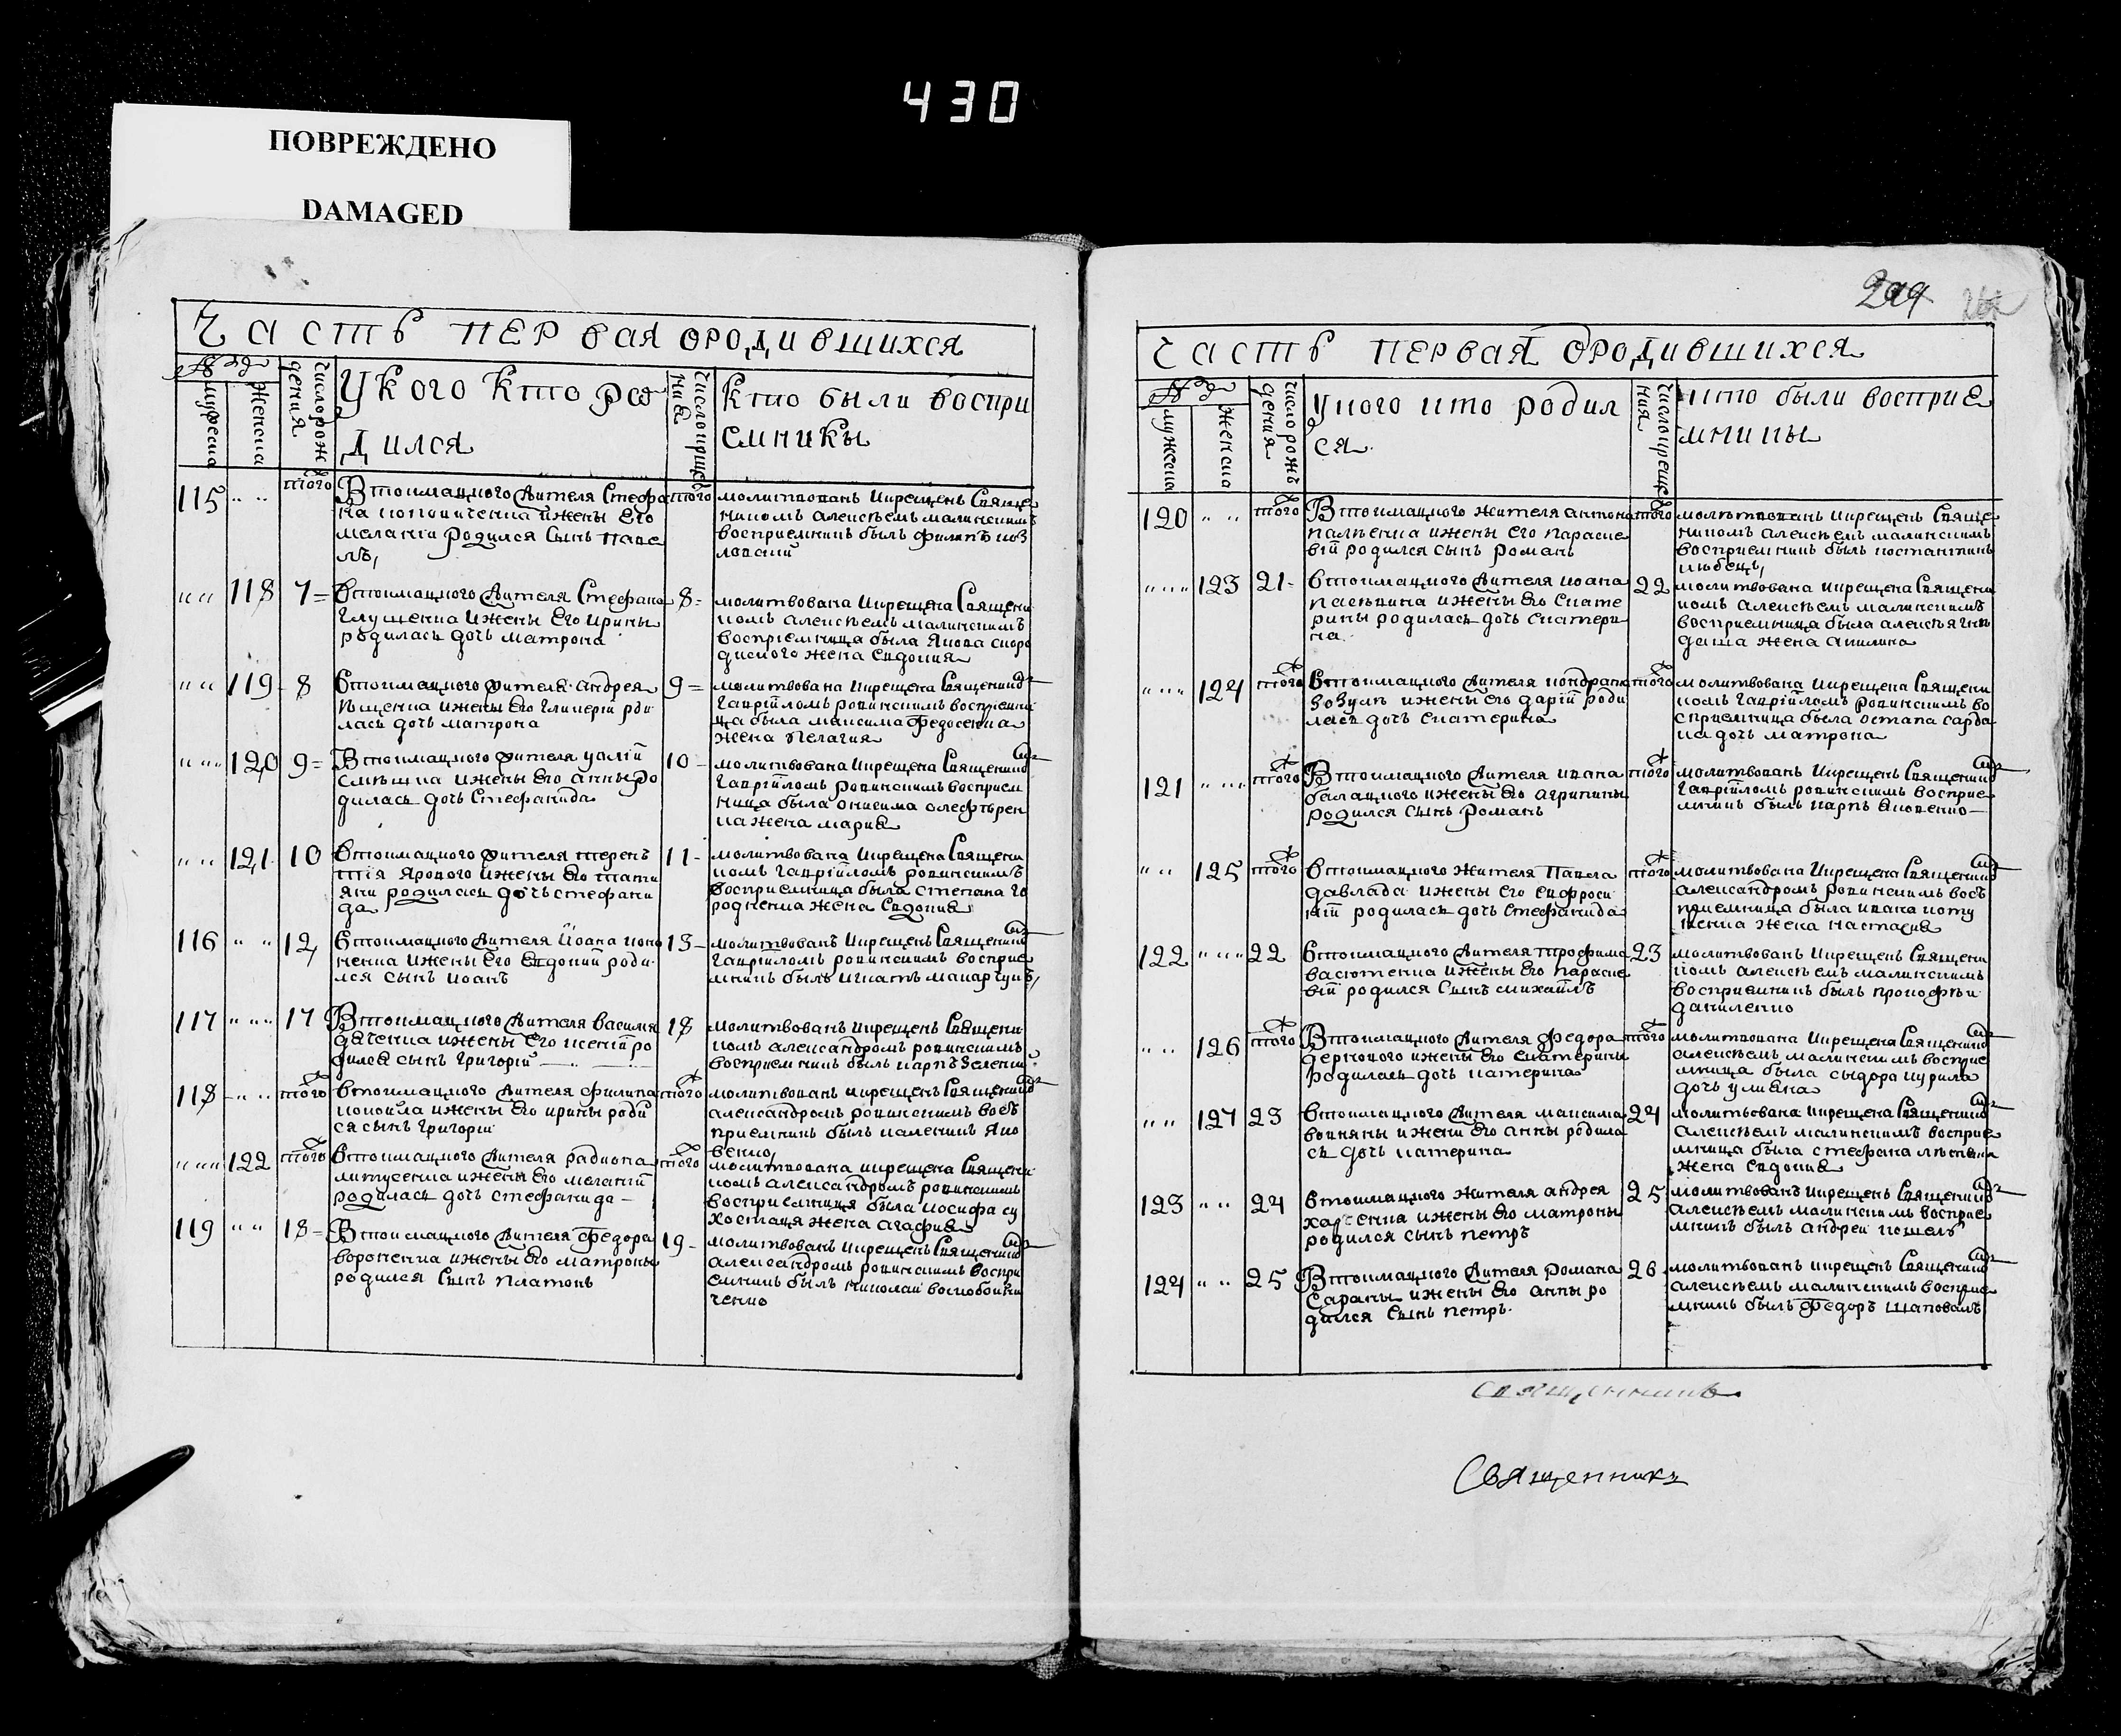 430
ПОВРЕЖДЕНО
DAMAGED
Часть первая ородившихся
№
мужеска
женска
число рож
дения
У кого кто ро
дился
число креще
ния
Кто были воспри
емники
115 " " того
Втокмацкого жителя Стефа
на кононченка ижены Его
мелании родился Сынъ Паве
лъ,
того
молитвованъ икрещенъ Свяще
никомъ алексѣемъ малинскимъ
восприемникъ былъ филипъ коз
ловский
" " 118 7
втокмацкого жителя Стефана
Глущенка ижены Его ирины
родилась дочь матрона
8
молитвована икрещена Священи
комъ алексѣемъ малинскимъ
восприемница была Якова скоро
дского жена Евдокия
" " 119 8
втокмацкого жителя андрея
ижены Его гликерии роди
лась дочь матрона
9
молитвована икрещена Священико
гавриломъ ровинскимъ восприемни
ца была максима федосенка
жена Пелагия
" " 120 9
Втокмацкого жителя
ижены Его анны ро
дилась дочь Стефанида
10
молитвована икрещена Священико
гавриломъ ровинскимъ восприем
ница была онисима олефѣрен
ка жена мария
" " 121 10
втокмацкого жителя терень
тия Ярового ижены Его тати
яни родилась дочь стефани
да
11
молитвована икрещена Священи
комъ гавриломъ ровинскимъ
восприемница была степана го
родненка жена Евдокия
116 " " 12
втокмацкого жителя Иоана коно
ненка ижены Его Евдокии роди
лся сынъ иоанъ
13
молитвованъ икрещенъ Священико
гавриломъ ровинскимъ восприе
мникъ былъ игнатъ макарчукъ,
117 " " 17
Втокмацкого жителя василия
дяченка ижены Его ксении ро
дился сынъ григорий
18
молитвованъ икрещенъ Священи
комъ александромъ ровинскимъ
восприемникъ былъ карпъ зеленский
118 " " того
втокмацкого жителя филипа
ижены Его ирины роди
ся сынъ григорий
того
молитвованъ икрещенъ Священико
александромъ ровинскимъ вось
приемникъ былъ каленикъ Яко
венко,
" " 122 того
втокмацкого жителя радиона
литусенка ижены Его мелании
родилась дочь стефанида
того
молитвована икрещена Священи
комъ александромъ ровинскимъ
восприемница была иосифа су
хостаця жена агафия
119 " " 18
Втокмацкого жителя федора
вороненка ижены Его матроны
родился Сынъ платонъ
19
молитвованъ икрещенъ Священико
александромъ ровинскимъ воспри
емникъ былъ николай воскобойни
ченко
Часть первая ородившихся
№
мужеска
женска
число рожъ
дения
Укого кто родил
ся
число креще
ния
кто были восприе
мники
120 " " того
Втокмацкого жителя антона
палѣенка ижены Его параске
вии родился сынъ романъ
того
молитвованъ икрещенъ Свяще
никомъ алексѣемъ малинскимъ
восприемникъ былъ костантинъ
любець,
" " 123 21
втокмацкого жителя иоана
пасѣвина ижены Его Екате
рины родилась дочь Екатери
на
22
молитвована икрещена Священи
комъ алексѣемъ малинскимъ
восприемница была алексѣя
жена акилина
" " 124 того
втокмацкого жителя кондрата
возулѣ ижены Его дарии роди
лась дочь Екатерина
того
молитвована икрещена Священи
комъ гавриломъ ровинскимъ во
сприемница была остапа сарда
ка дочь матрона
121 " " того
Втокмацкого жителя ивана
балацкого ижены Его агрипины
родился сынъ романъ
того
молитвованъ икрещенъ Священико
гавриломъ ровинскимъ восприе
мникъ былъ карпъ Яковенко
" " 125 того
втокмацкого жителя Павла
давлада ижены Его Евфроси
нии родилась дочь стефанида
того
молитвована икрещена Священико
александромъ ровинскимъ вось
приемница была ивана
жена настасия
122 " " 22
втокмацкого жителя трофима
васютенка ижены Его параске
вии родился сынъ михаилъ
23
молитвованъ икрещенъ Священи
комъ алексѣемъ малинскимъ
восприемникъ былъ прокофѣй
даниленко
" " 126 того
Втокмацкого жителя федора
дернового ижены Его Екатерины
родилась дочь катерина
того
молитвована икрещена Священико
алексѣемъ малинскимъ восприе
мница была сыдора курила
дочь улияна
" " 127 23
втокмацкого жителя максима
ковняны ижени Его анны родила
сь дочь катерина
24
молитвована икрещена Священико
алексѣемъ малинскимъ восприе
мница была стефана
жена Евдокия
123 " " 24
втокмацкого жителя андрея
ижены Его матроны
родился сынъ петръ
25
молитвованъ икрещенъ Священико
алексѣемъ малинскимъ восприе
мникъ былъ андрей кошель
124 " " 25
Втокмацкого жителя романа
Сараны ижены Его анны ро
дился Сынъ петръ
26
молитвованъ икрещенъ Священико
алексѣемъ малинскимъ восприе
мникъ былъ федоръ шаповалъ
Священникъ
Священникъ